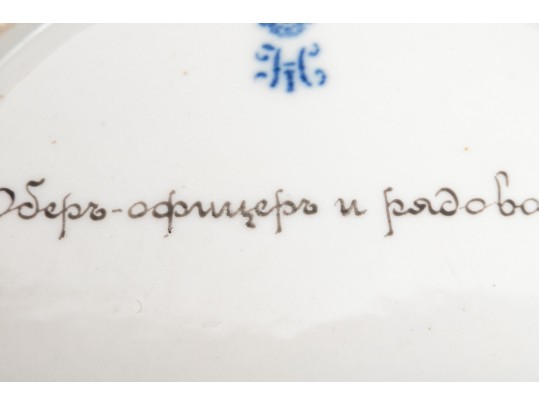 Оберъ-офицеръ и рядово